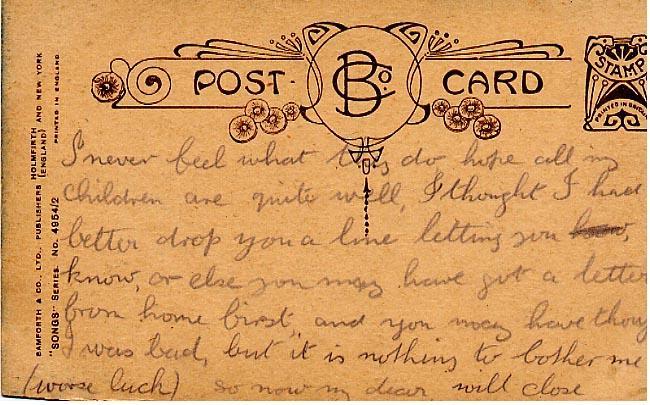 POST CARD
B Co.
STAMP
PRINTED IN
BAMFORTH & CO., LTD., PUBLISHERS HOLMFIRTH (ENGLAND) AND NEW YORK
"SONGS" SERIES NO. 4954/2
PRINTED IN ENGLAND
I never feel what do hope all my
Children are quite well, I thought I had
better drop you a line letting you know,
know, or else you may have got a letter
from home first, and you may have thou
I was bad, but it is nothing to bother me
(worse luck) so now my dear will close